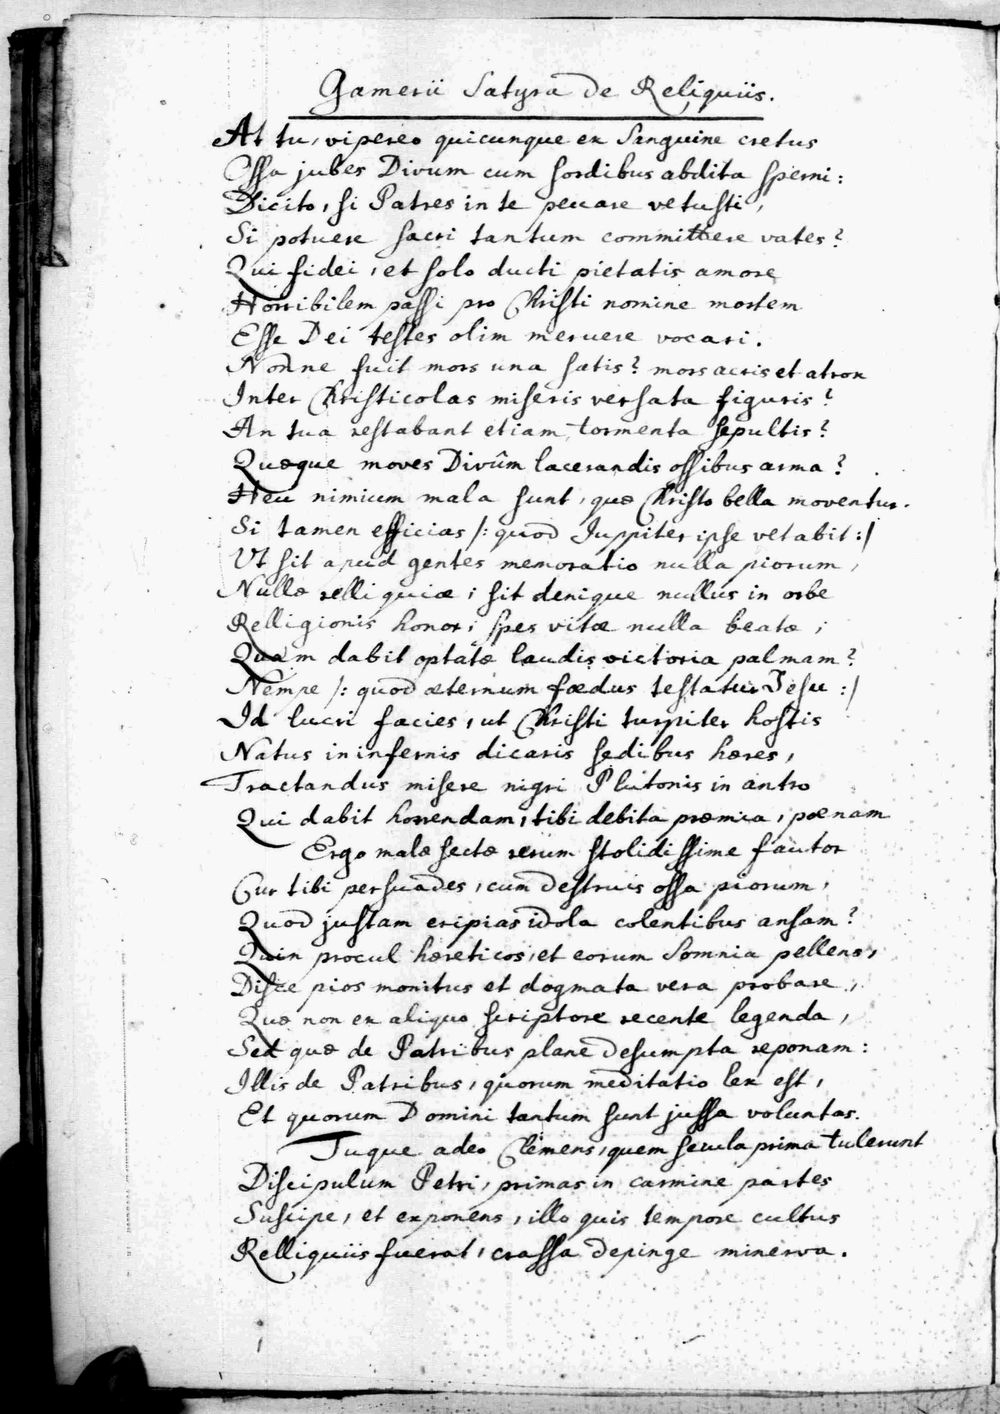 Gamerii Satyra de Reliquiis.
At tu, vipereo quicunque ex Sanguine cretus
Ossa jubes Divum cum sordibus abdita sperni:
Dicito, si Patres in te peccare vetusti,
Si potuere sacri tantum committere vates?
Qui fidei, et solo ducti pietatis amore
Horribilem passi pro Christi nomine mortem
Esse Dei testes olim meruere vocari.
Nonne fuit mors una satis? mors acris et atrox
Inter Christicolas miseris versata figuris?
An tua restabant etiam tormenta sepultis?
Quæque moves Divûm lacerandis ossibus arma?
Heu nimium mala sunt, quæ Christo bella moventur.
Si tamen efficias /: quod Juppiter ipse vetabit :/
Ut sit apud gentes memoratio nulla piorum,
Nullæ relliquiæ, sit denique nullus in orbe
Relligionis honor, spes vitæ nulla beatæ;
Quam dabit optatæ laudis victoria palmam?
Nempe /: quod æternum fœdus testatur Jesu :/
Id lucri facies, ut Christi turpiter hostis
Natus in infernis dicaris sedibus hæres,
Tractandus misere nigri Plutonis in antro
Qui dabit horrendam, tibi debita præmia, pœnam
Ergo malæ sectæ rerum stolidissime fautor
Cur tibi persuades, cum destruis ossa piorum,
Quod justam eripias idola colentibus ansam?
Quin procul hæreticos, et eorum Somnia pellens,
Disce pios monitus et dogmata vera probare,
Quæ non ex aliquo scriptore recente legenda,
Sed quæ de Patribus plane desumpta reponam:
Illis de Patribus, quorum meditatio lex est,
Et quorum Domini tantum sunt jussa voluntas.
Tuque adeo Clemens, quem secula prima tulerunt
Discipulum Petri, primas in carmine partes
Suscipe, et exponens, illo quis tempore cultus
Relliquiis fuerat, crassa depinge minerva.